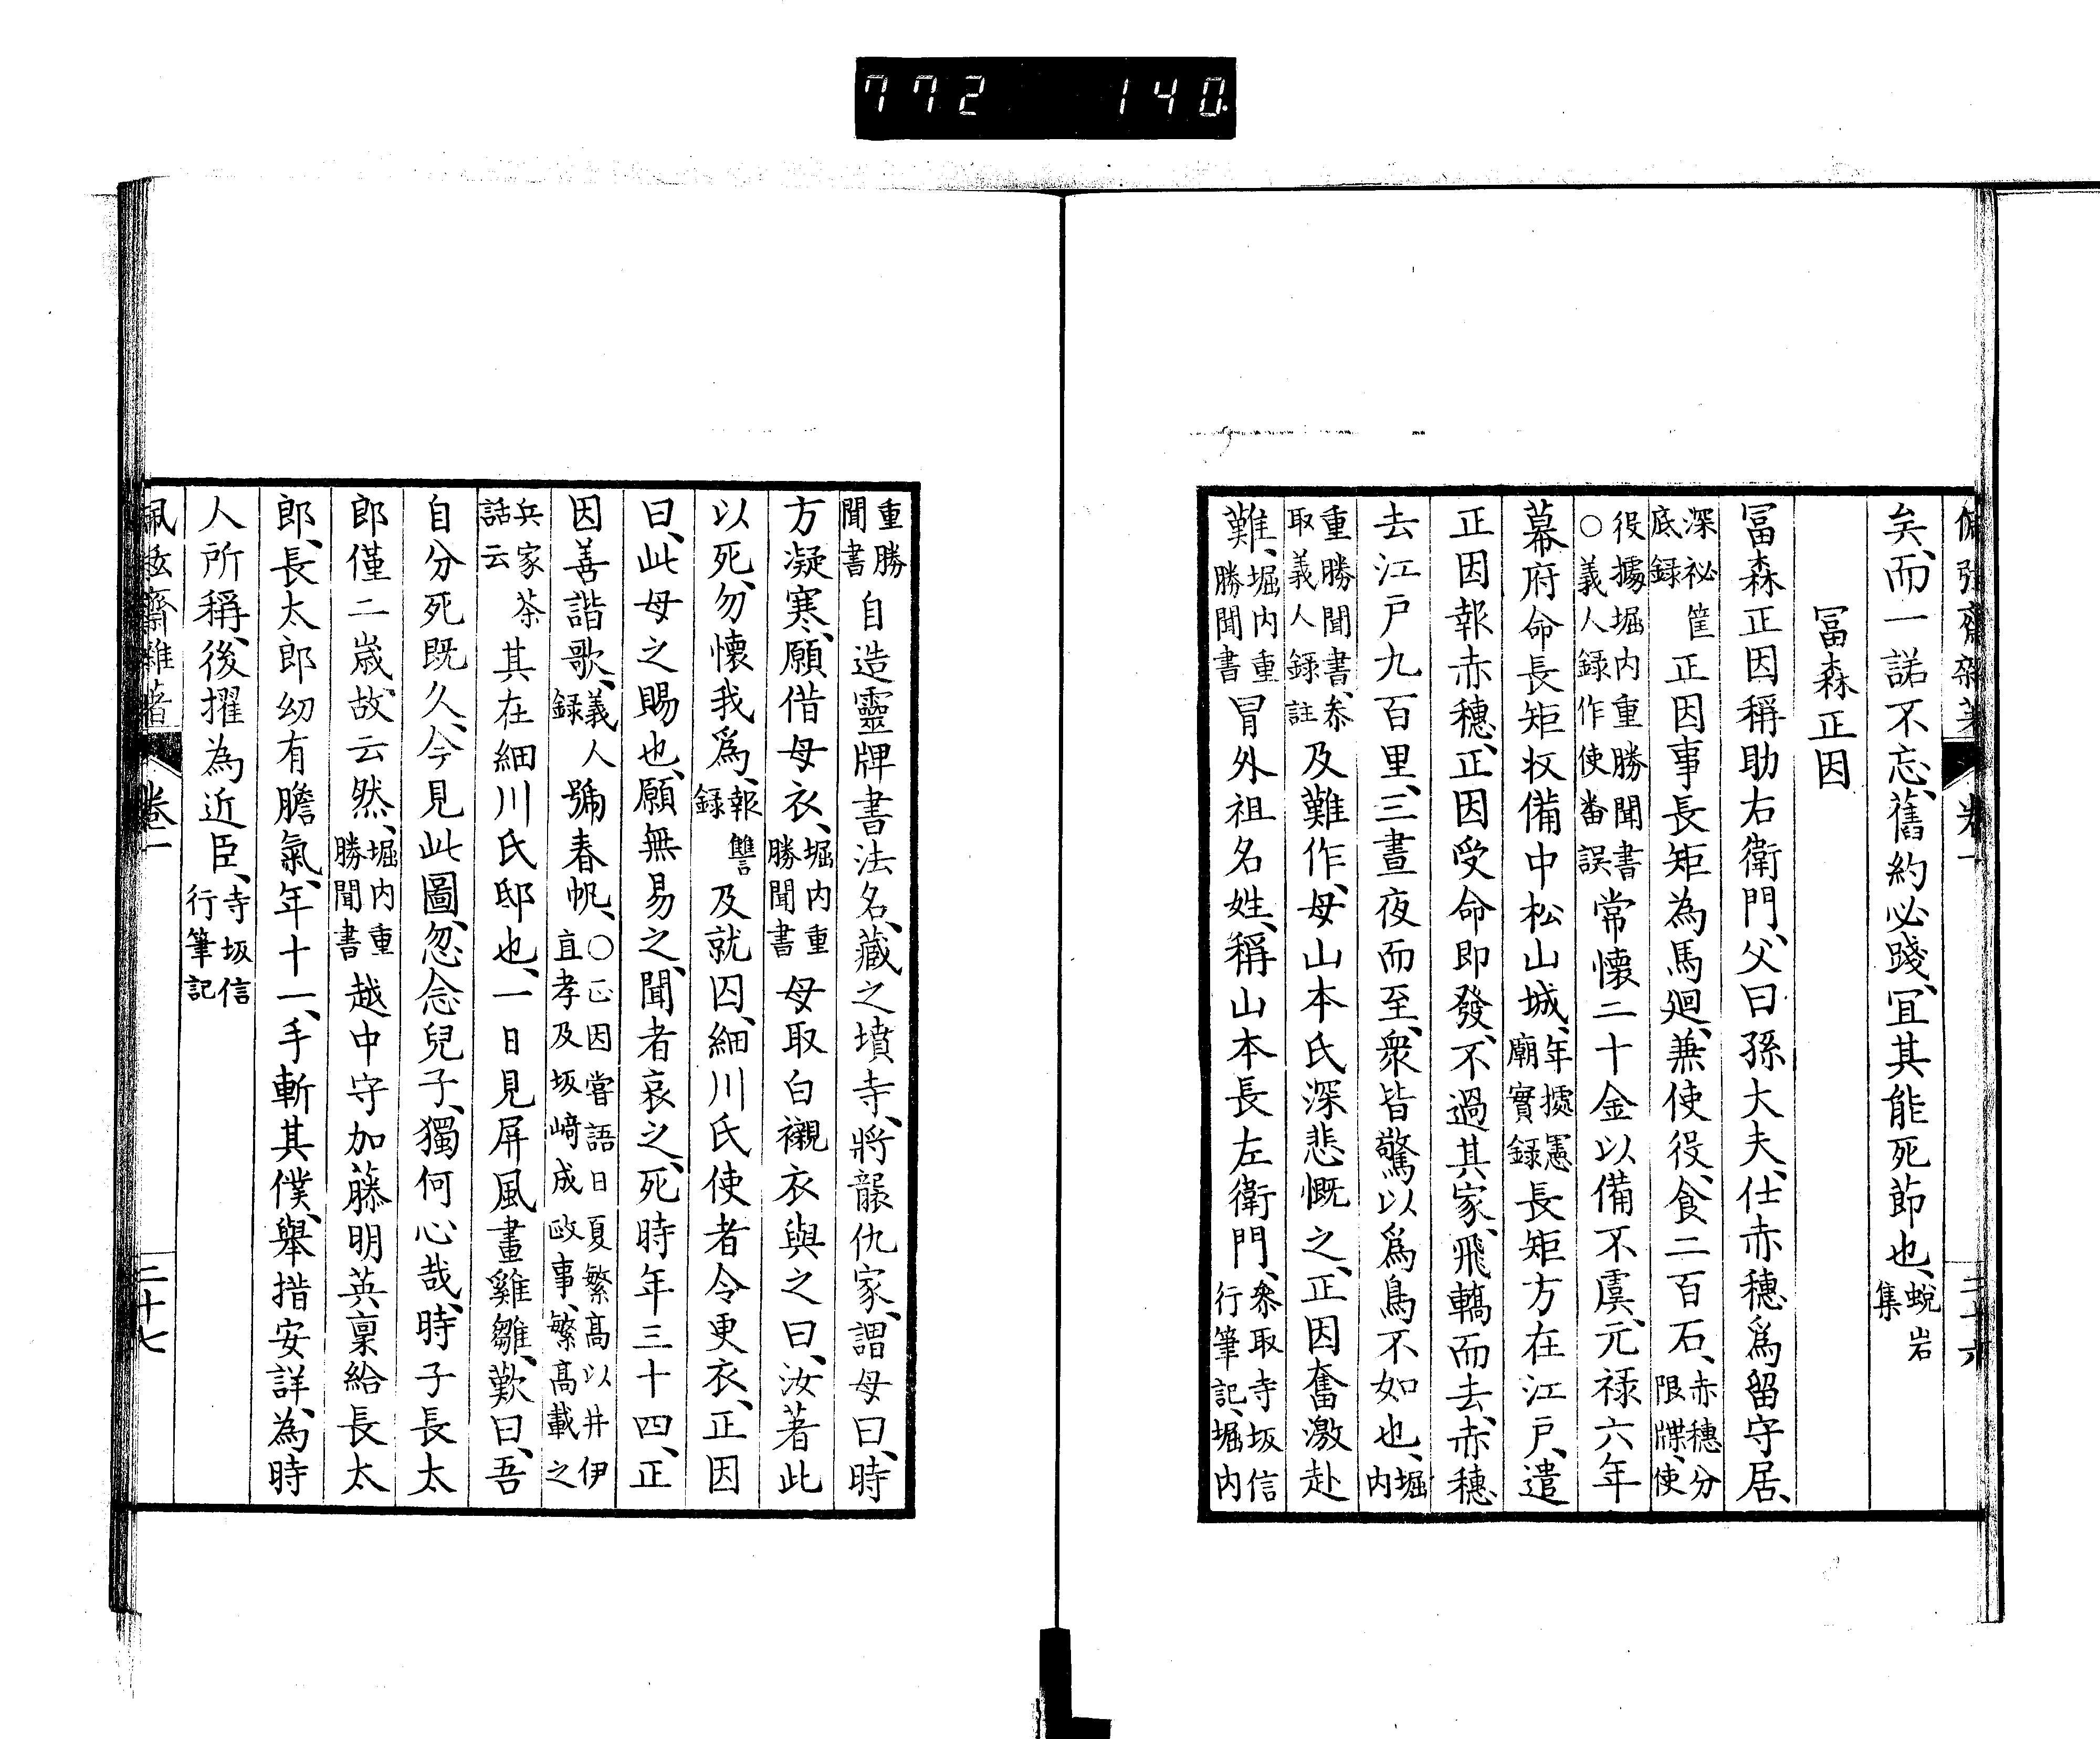 772 140
矣、而一諾不忘、舊約必踐、宜其能死節也、蛻岩集
冨森正因
冨森正因稱助右衛門、父曰孫大夫、仕赤穗爲留守居、
深祕筐底録正因事長矩為馬廻、兼使役、食二百石、赤穗分限牒、使
役據堀内重勝聞書○義人録作使畨誤常懷二十金以備不虞、元禄六年
幕府命長矩収備中松山城、年據憲廟實録長矩方在江戸、遣
正因報赤穗、正因受命即發、不過其家、飛轎而去、赤穗
去江戸九百里、三晝夜而至、衆皆驚以爲鳥不如也、堀内
重勝聞書、叅取義人録註及難作、母山本氏深悲慨之、正因奮激赴
難、堀内重勝聞書冒外祖名姓、稱山本長左衛門、叅取寺坂信行筆記、堀内
重勝聞書自造靈牌書法名、藏之墳寺、將報仇家、謂母曰、時
方凝寒、願借母衣、堀内重勝聞書母取白襯衣與之曰、汝著此
以死、勿懷我爲、報讐録及就囚、細川氏使者令更衣、正因
曰、此母之賜也、願無易之、聞者哀之、死時年三十四、正
因善諧歌、義人録號春帆、○正因嘗語曰夏繁髙以井伊直孝及坂﨑成政事、繁髙載之
兵家茶話云其在細川氏邸也、一日見屏風畫雞雛、歎曰、吾
自分死既久、今見此圖、忽念兒子、獨何心哉、時子長太
郎僅二歳故云然、堀内重勝聞書越中守加藤明英禀給長太
郎、長太郎幼有膽氣、年十一、手斬其僕、舉措安詳、為時
人所稱、後擢為近臣、寺坂信行筆記
卷一
二十七